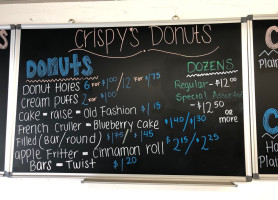 Crispy's Donuts
DONUTS
DOZENS
Donut Holes 6 for $1.00 / 12 for $1.75
Regular - $12.00
Cream Puffs 2 for $1.00
Special Assorted
Cake - raise - Old Fashion $1.15
- $12.50 or more
French Cruller - Blueberry Cake $1.40/$1.30
Filled (Bar/round) $1.75/$1.45
apple Fritter - Cinnamon roll $2.15/$2.25
Bars - Twist $1.20
Plain
Ham
Plain